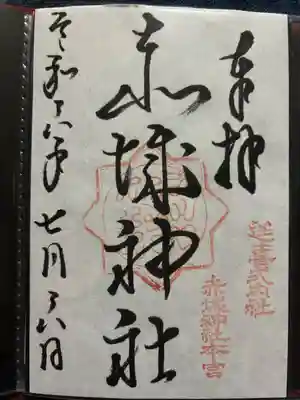 奉拝
延喜式内社
赤城神社本宮
赤城神社
令和六年七月六日